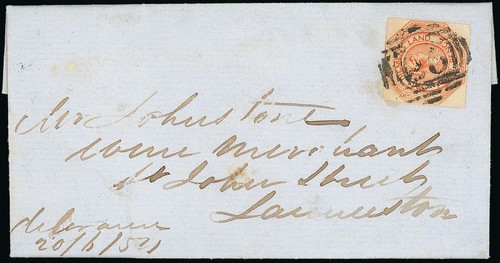 LAND
Mr Johnstone
Wine Merchant
St John Street
Launceston
Deloraine
20/6/54